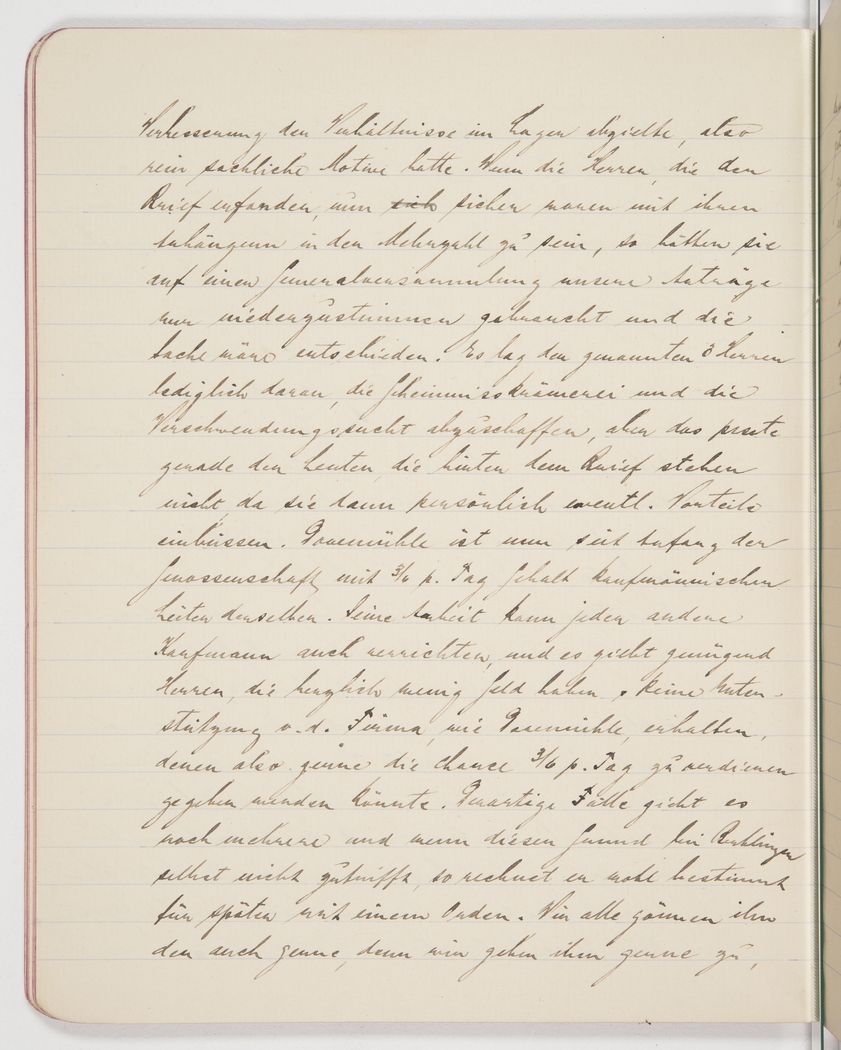 Verbesserung der Verhältnisse im Lager abzielte, also
rein sachliche Motive hatte. Wenn die Herren, die den
Brief erfanden, nun sich sicher waren mit ihren
Anhängern in der Mehrzahl zu sein, so hätten sie
auf einer Generalversammlung unsere Anträge
nur niederzustimmen gebraucht und die
Sache wäre entschieden. Es lag den genannten 3 Herren
lediglich daran, die Geheimniskrämerei und die
Verschwendungssucht abzuschaffen, aber das passte
gerade den Leuten, die hinter dem Brief stehen
nicht, da sie dann persönlich eventl. Vorteile
einbüssen. Posemühle ist nun seit Anfang der
Genossenschaft mit 3/6 p. Tag Gehalt kaufmännischer
Leiter derselben. Seine Arbeit kann jeder andere
Kaufmann auch verrichten, und es giebt genügend
Herren, die herzlich wenig Geld haben, keine Unter-
stützung v. d. Firma, wie Posemühle, erhalten,
denen also gerne die Chance 3/6 p. Tag zu verdienen
gegeben werden könnte. Derartige Fälle giebt es
noch mehrere und wenn dieser Grund bei
selbst nicht zutrifft, so rechnet er wohl bestimmt
für später mit einem Orden. Wir alle gönnen ihm
den auch gerne, denn wir geben ihm gerne zu,